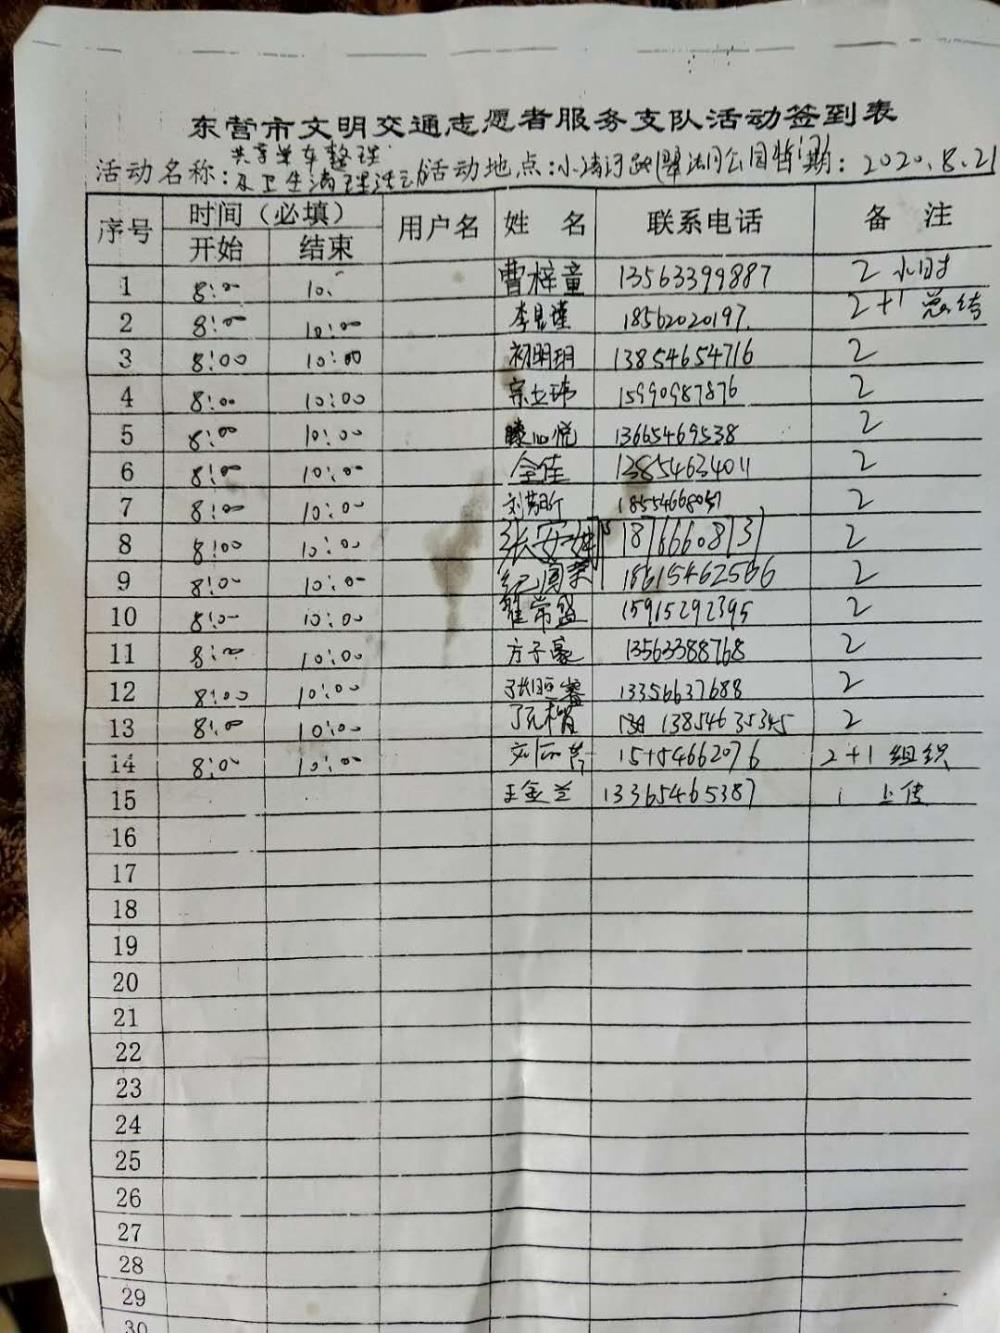 东营市文明交通志愿者服务支队活动签到表
活动名称：共享单车整理及卫生清理活动 活动地点：小清河路 公园 日期：2020.8.21
序号 时间（必填） 用户名 姓 名 联系电话 备 注
开始 结束
1 8:00 10: 曹梓童 13563399887 2 小时
2 8:00 10:00 李 瑾 18562020197 2+1 总结
3 8:00 10:00 初明玥 13854654716 2
4 8:00 10:00 宗立玮 15990987876 2
5 8:00 10:00 滕心悦 13665469538 2
6 8:00 10:00 仝佳 13854634011 2
7 8:00 10:00 刘 昕 2
8 8:00 10:00 张安娜 2
9 8:00 10:00 纪 荣 18615462566 2
10 8:00 10:00 翟常盛 15915292395 2
11 8:00 10:00 方子豪 13563388768 2
12 8:00 10:00 张 睿 13356637688 2
13 8:00 10:00 13854635345 2
14 8:00 10:00 15154662076 2+1 组织
15 王金兰 13365465387 1 上传
16
17
18
19
20
21
22
23
24
25
26
27
28
29
30